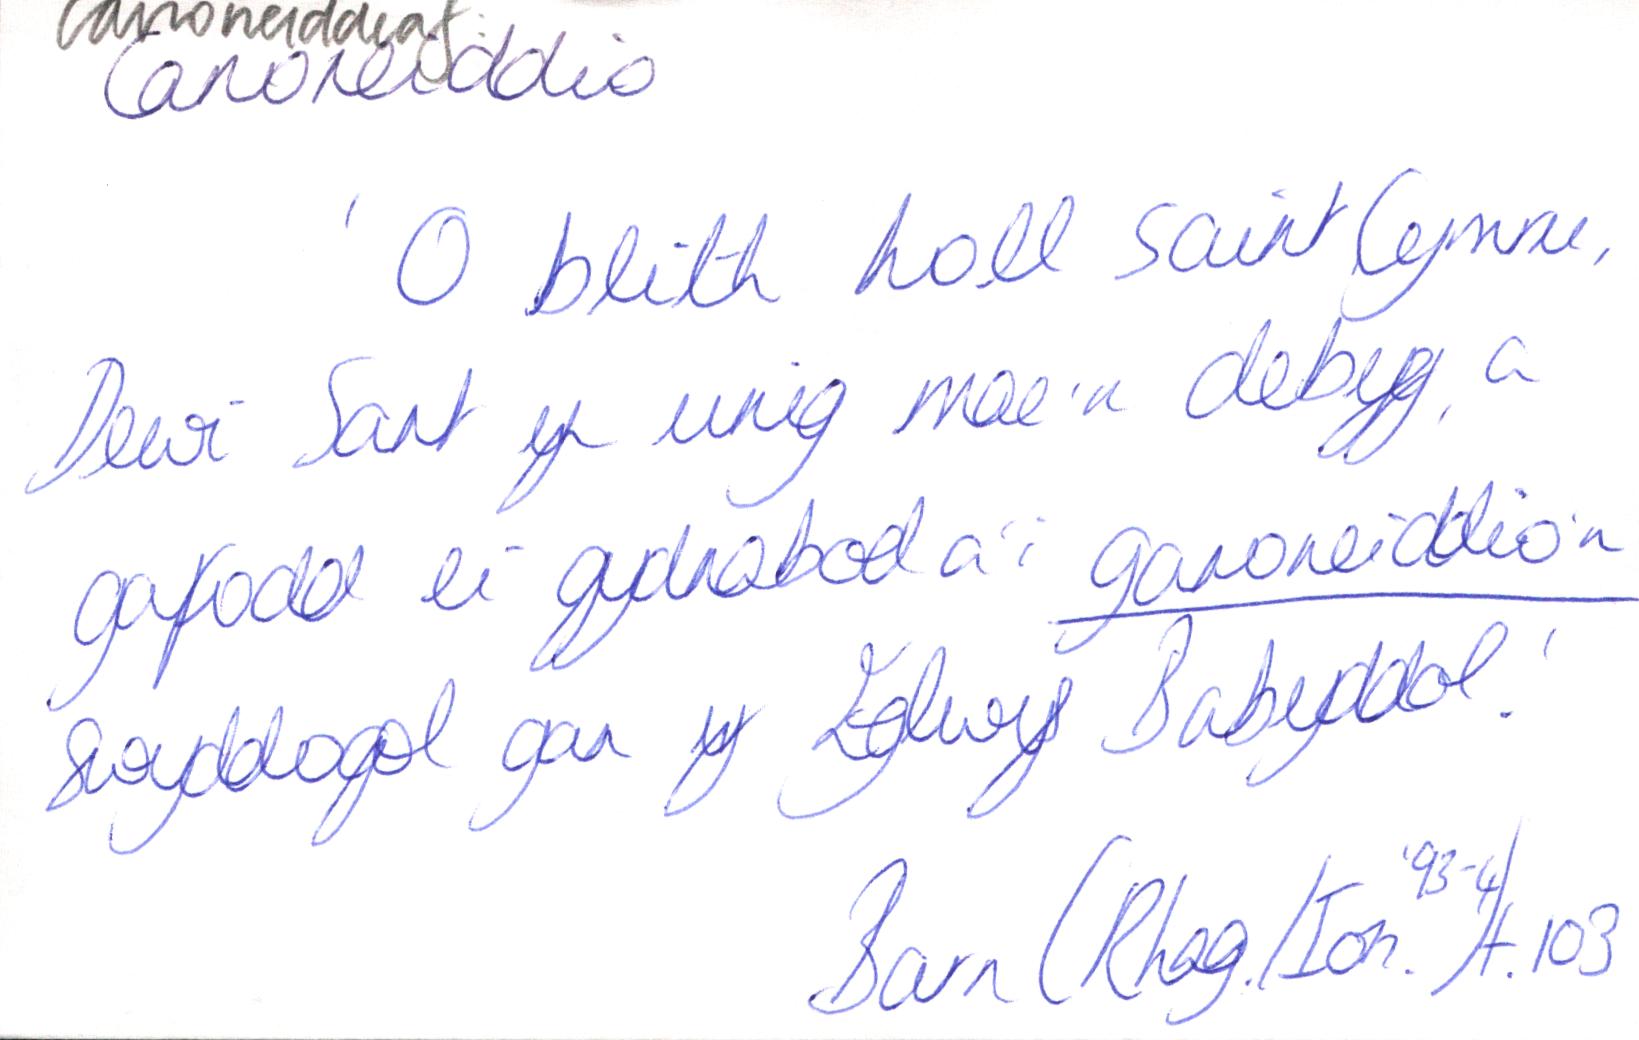 canoneiddiaf:
Canoneiddio
'O blith holl saint Cymru,
Dewi Sant yr unig mae'n debyg, a
gafodd ei gydnabod a'i ganoneiddio'n
swyddogol gan yr Eglwys Babyddol.'
Barn (Rhag./Ion. '93-4) t. 103